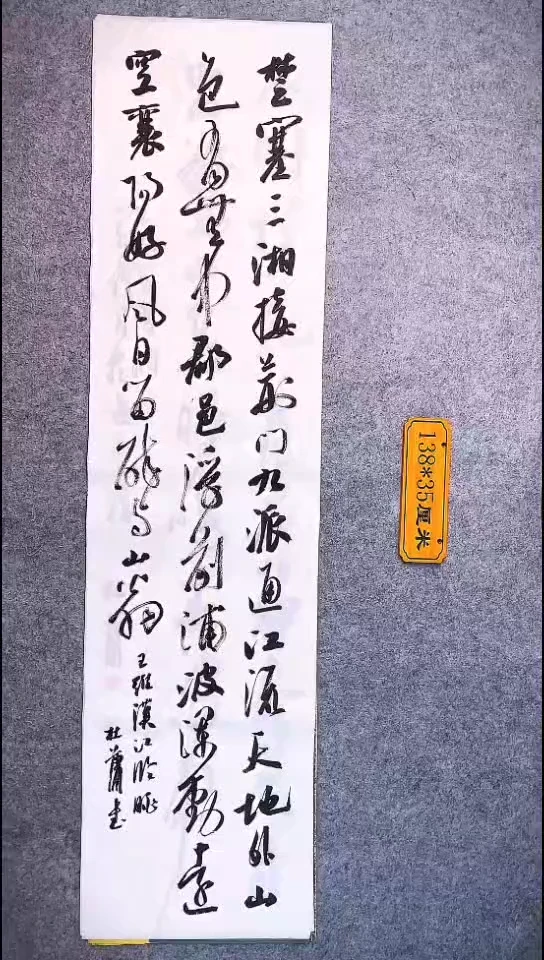 楚塞三湘接荆门九派通江流天地外山
色有無中郡邑浮前浦波澜動遠
空襄阳好风日留醉与山翁
王維漢江临眺
杜蕭书
138*35厘米